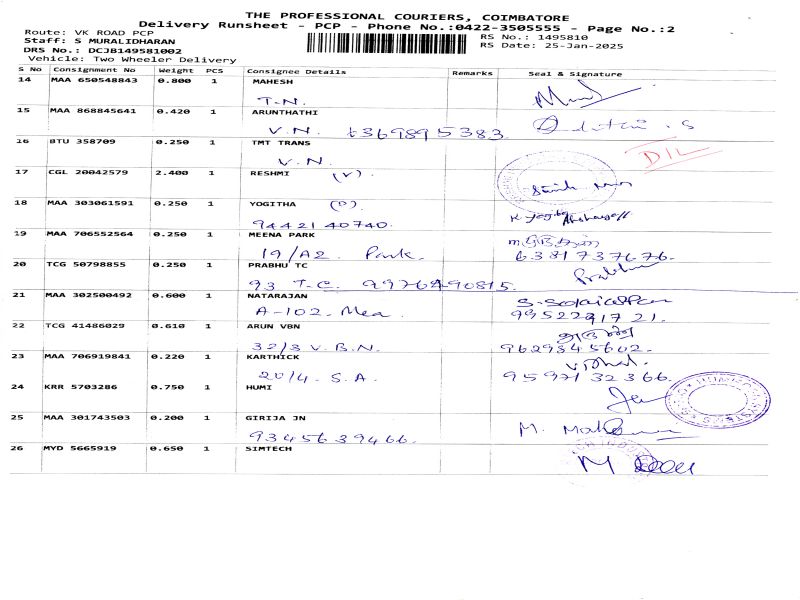 THE PROFESSIONAL COURIERS, COIMBATORE
Delivery Runsheet - PCP - Phone No.:0422-3505555 - Page No.:2
Route: VK ROAD PCP
RS No.: 1495810
Staff: S MURALIDHARAN
RS Date: 25-Jan-2025
DRS No.: DCJB149581002
Vehicle: Two Wheeler Delivery
S No Consignment No Weight PCS Consignee Details Remarks Seal & Signature
14 MAA 650548843 0.800 1 MAHESH
T.N.
15 MAA 868845641 0.420 1 ARUNTHATHI
V.N.
16 BTU 358709 0.250 1 TMT TRANS
V.N. DIL
17 CGL 20042579 2.400 1 RESHMI (V)
18 MAA 303061591 0.250 1 YOGITHA
9442140740.
19 MAA 706552564 0.250 1 MEENA PARK
19/A2 Park. 6381737676.
20 TCG 50798855 0.250 1 PRABHU TC Prabhu
93 T.C. 9976490815.
21 MAA 302500492 0.600 1 NATARAJAN
A-102. Mea
22 TCG 41486029 0.610 1 ARUN VBN
32/3 V.B.N. 9629345602.
23 MAA 706919841 0.220 1 KARTHICK
20/4. S.A. 9597132366.
24 KRR 5703286 0.750 1 HUMI
25 MAA 301743503 0.200 1 GIRIJA JN
9345639466.
26 MYD 5665919 0.650 1 SIMTECH